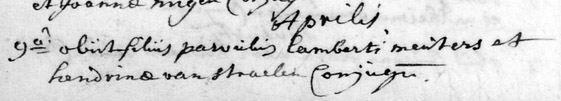 et Joannæ
Aprilis
9â obiit filius parvulus lamberti meuters et
hendrinæ van straelen Conjugu.